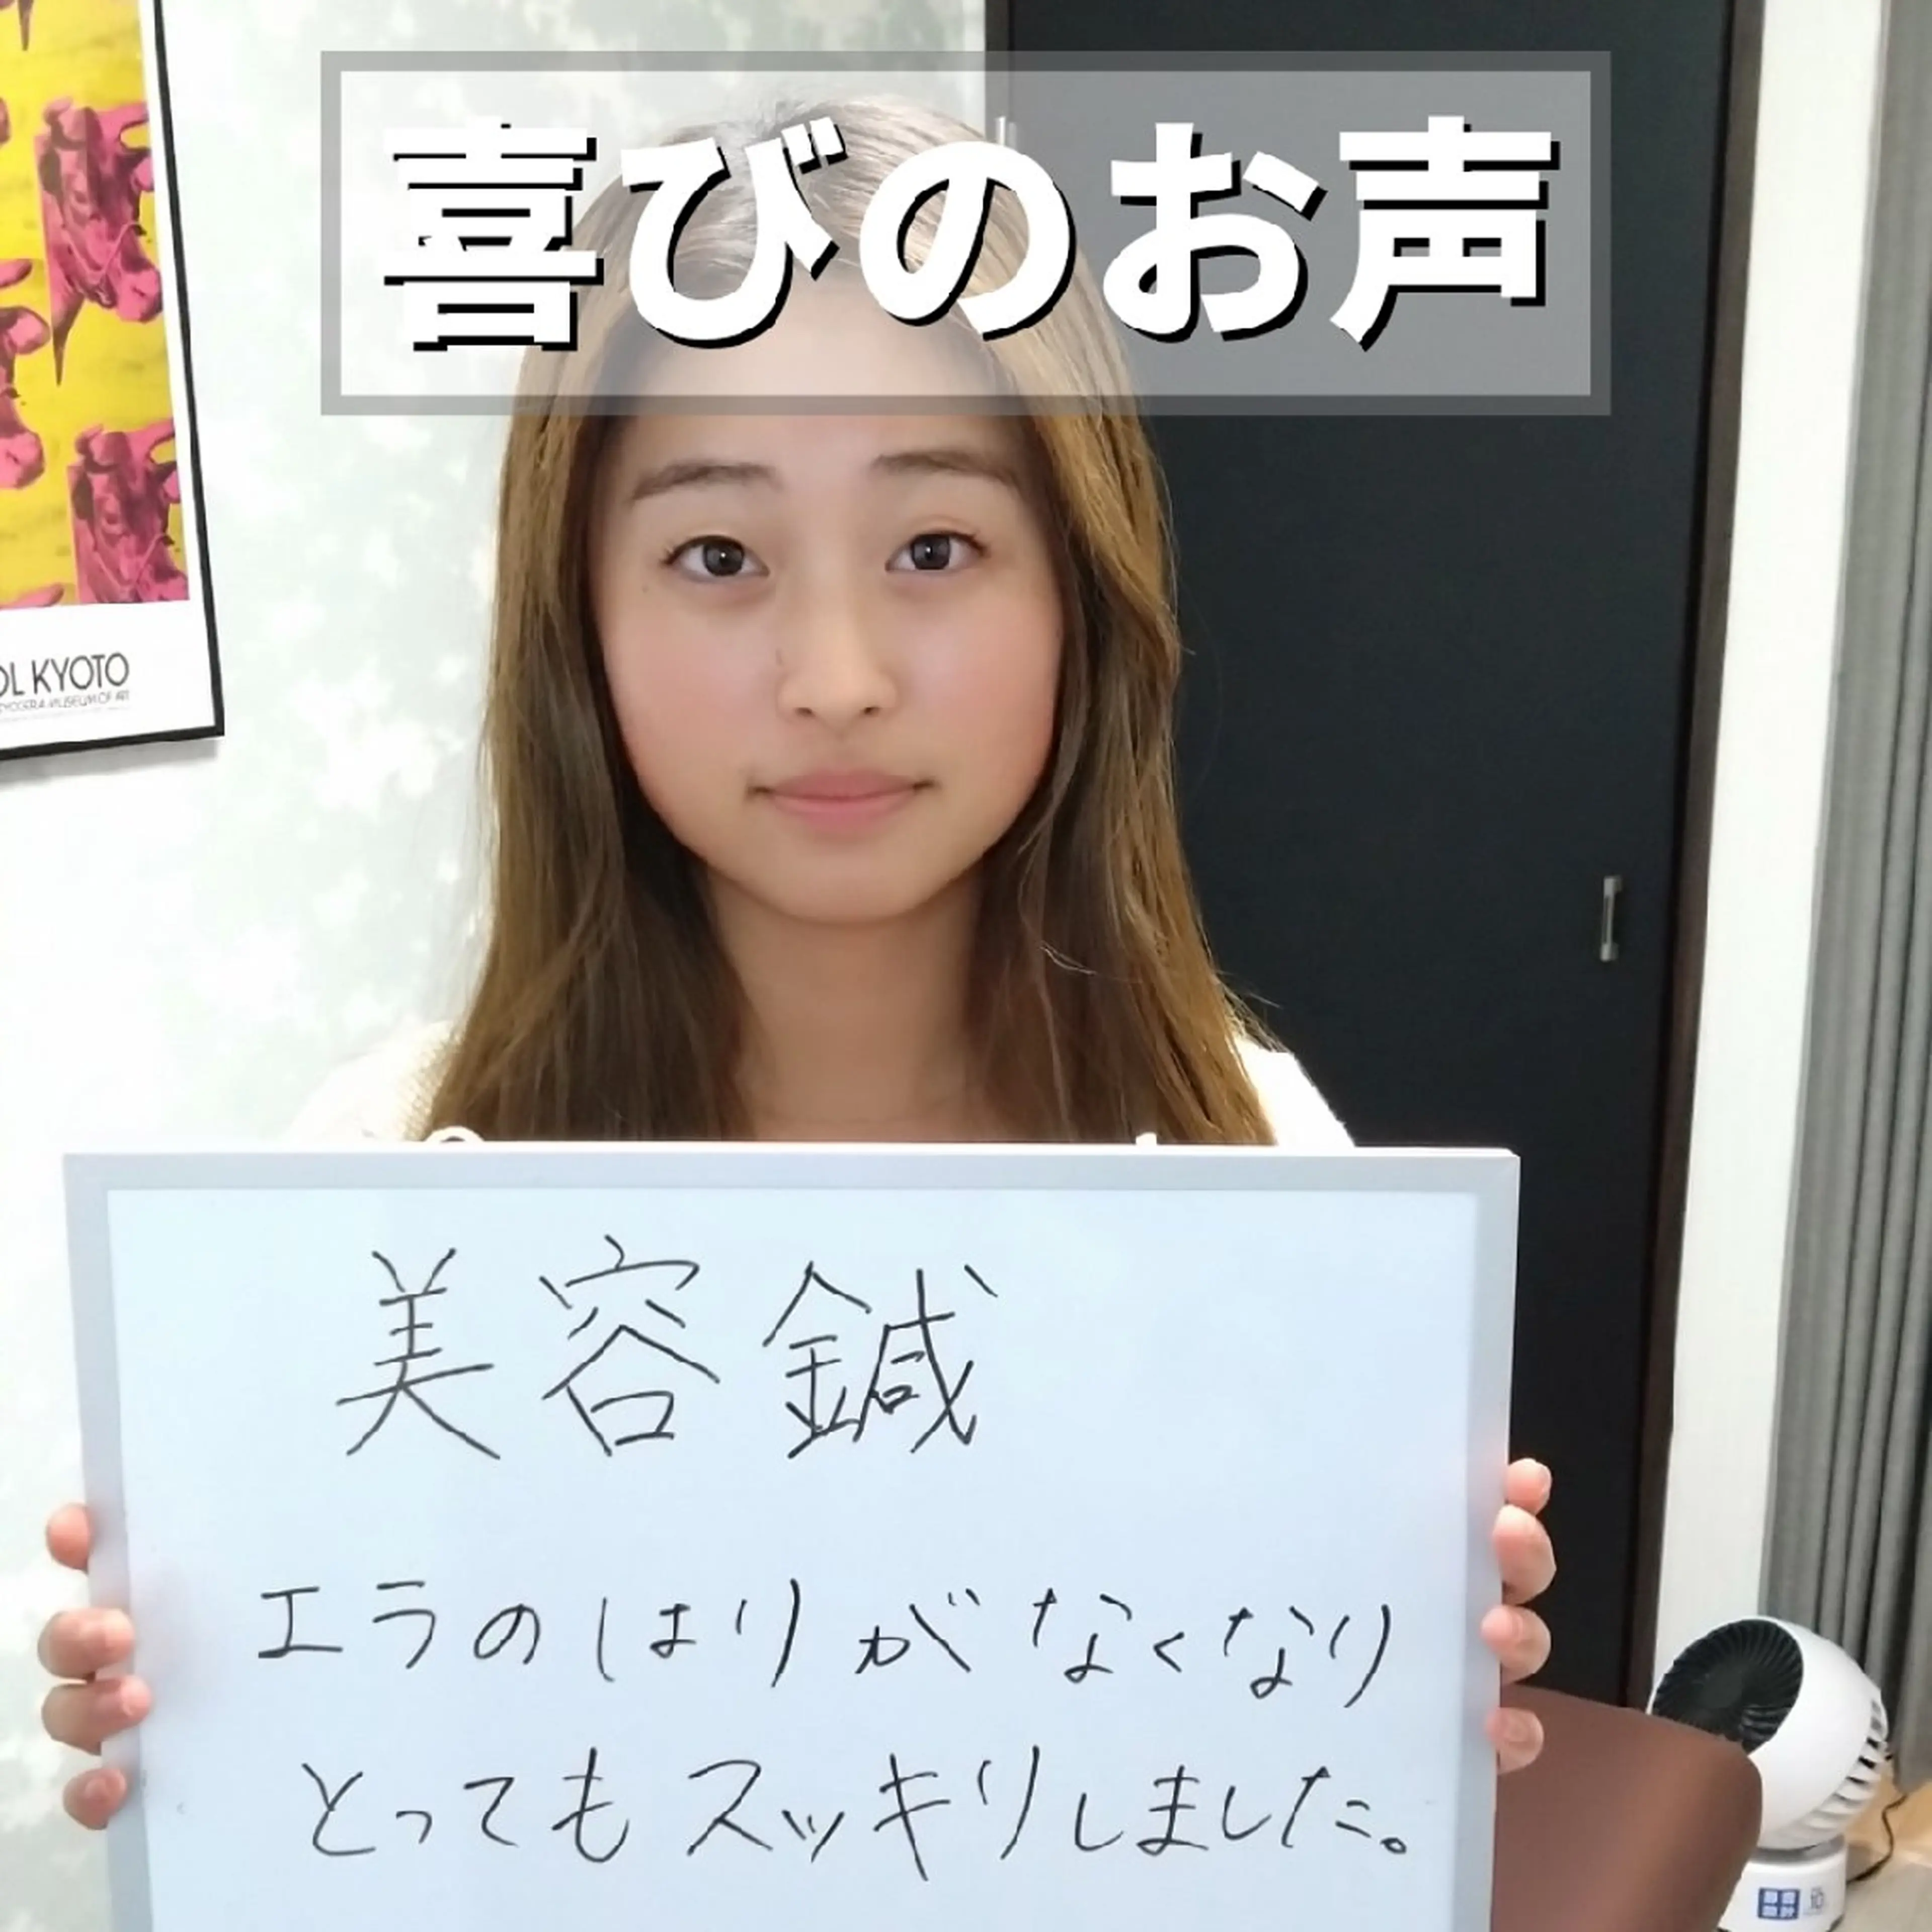 喜びのお声
OL KYOTO
KYOCERA MUSEUM OF ART
美容鍼
エラのはりがなくなり
とってもスッキリしました。